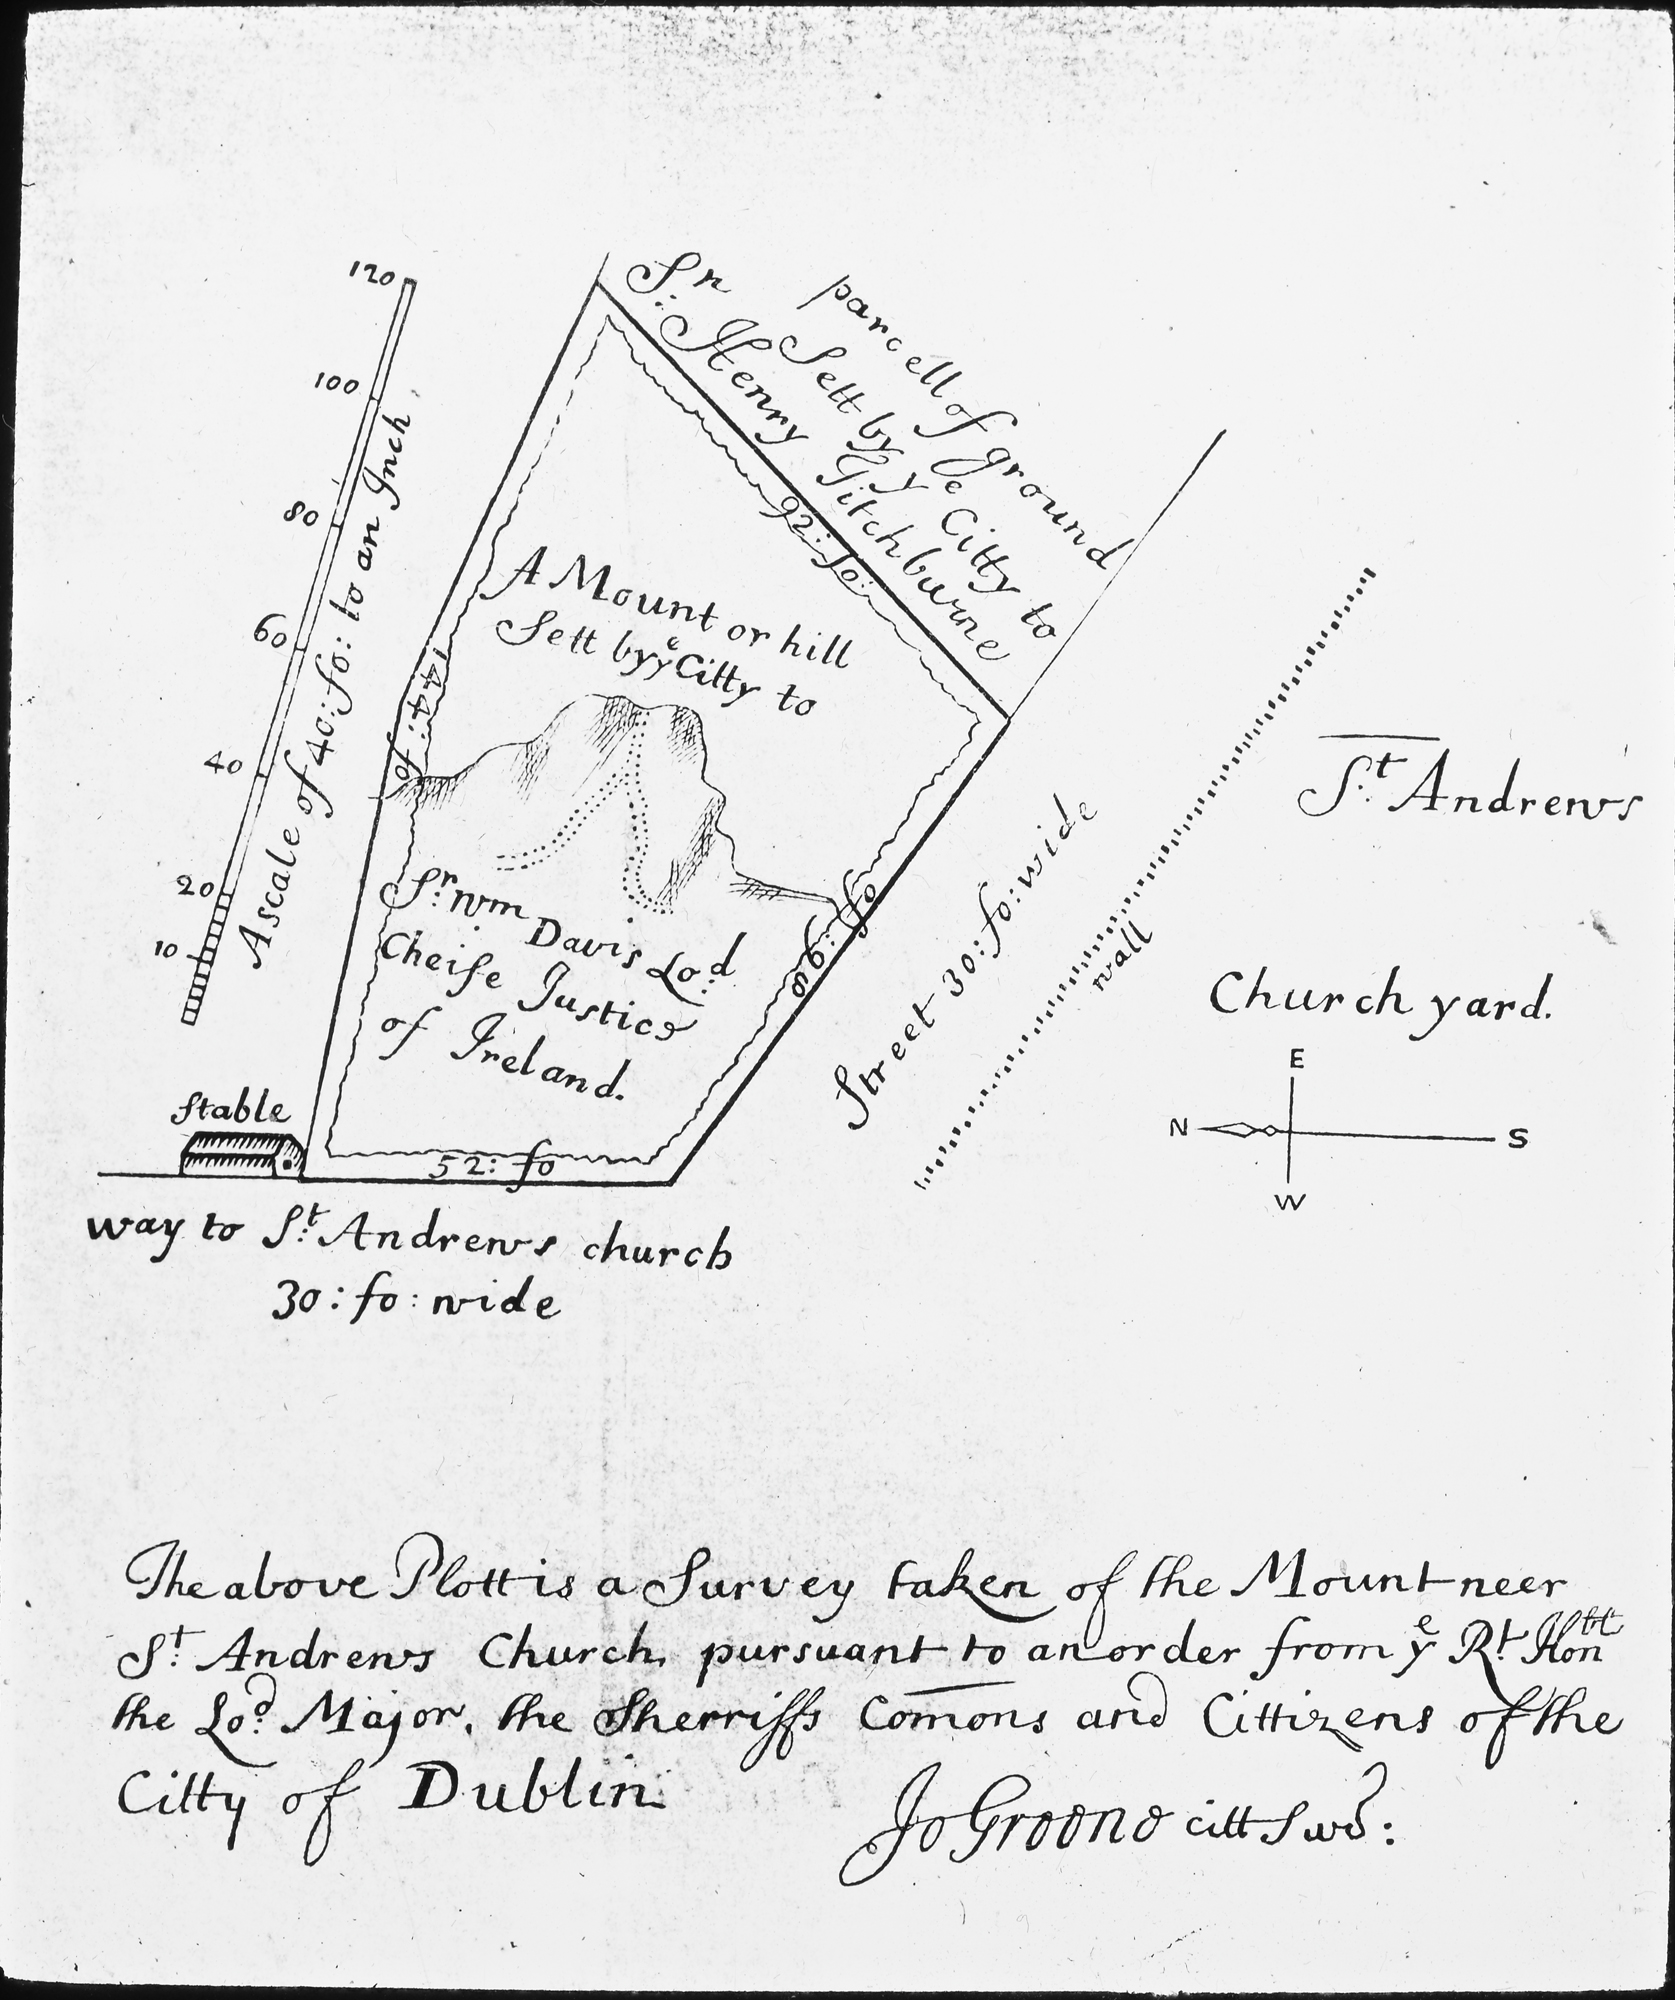 120
100
80
60
40
20
10
A scale of 40: fo: to an Inch
parcell of ground
Sett by yᵉ Citty to
Sʳ: Henry Titchburne
92: fo:
A Mount or hill
Sett by yᵉ Citty to
144: fo
Sʳ: Wm Davis Lo:ᵈ
Cheife Justice
of Ireland.
86: fo
52: fo
Stable
Street 30: fo: wide
wall
Sᵗ: Andrews
Church yard.
E
N
S
W
way to Sᵗ: Andrews church
30: fo: wide
The above Plott is a Survey taken of the Mount neer
Sᵗ: Andrews Church, pursuant to an order from yᵉ Rᵗ Honᵇˡᵉ
the Lo:ᵈ Major, the Sherriffs Comons and Cittizens of the
Citty of Dublin
Jo Greene citt